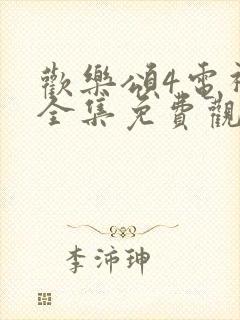 歡樂頌4電視
全集免費觀
李沛珅